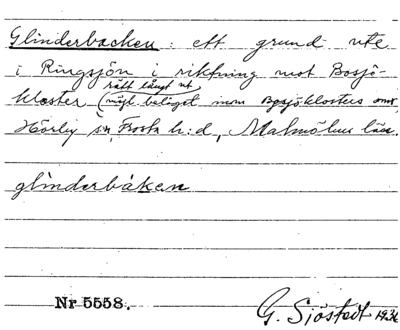 Glinderbacken: ett grund ute
i Ringsjön i riktning mot Bosjö-
rätt långt ut
kloster (möjl. beläget inom Bosjöklosters omr.)
Hörby sn, Frosta h:d, Malmöhus län.
glinderbáken
Nr 5558.
G. Sjöstedt 1936